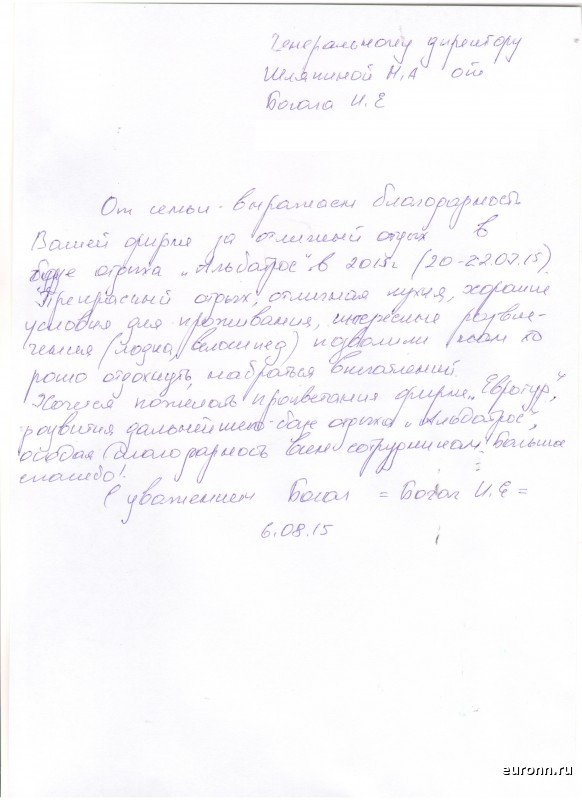 Генеральному директору
Шляпиной Н.А от
Богола И.Е
От семьи выражаем благодарность
Вашей фирме за отличный отдых в
базе отдыха „Альбатрос" в 2015г (20-22.07.15).
Прекрасный отдых, отличная кухня, хорошие
условия для проживания, интересные развле-
чения (лодка, велосипед) позволили нам хо
рошо отдохнуть, набраться впечатлений.
Хочется пожелать процветания фирме „Евротур",
развития дальнейшего - базе отдыха „Альбатрос",
особая благодарность всем сотрудникам. Большое
спасибо!
С уважением Богол = Богол И.Е =
6.08.15
euronn.ru